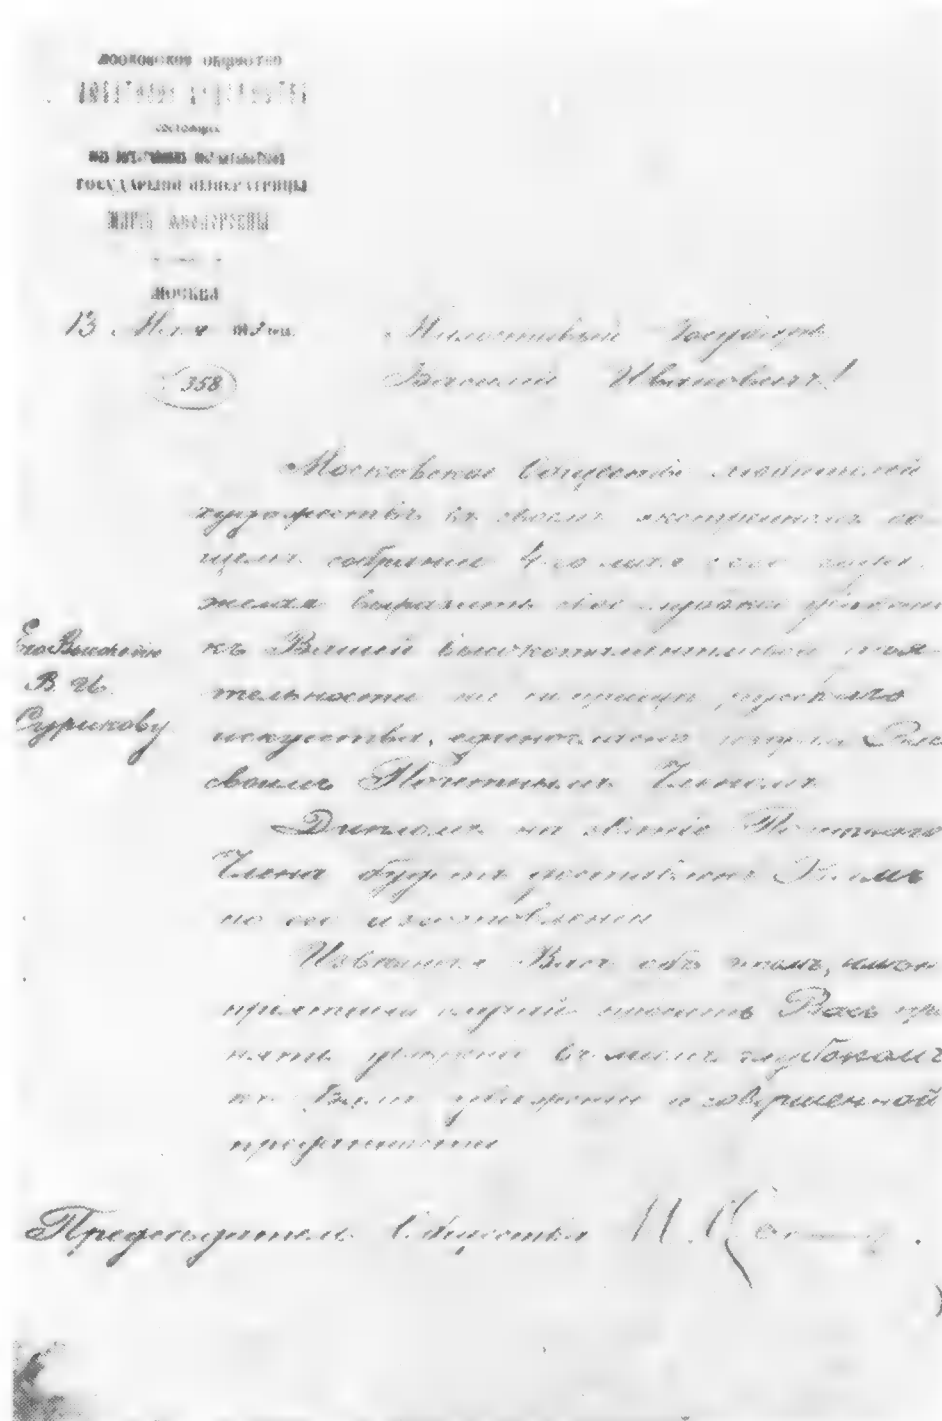 МОСКОВСКОЕ ОБЩЕСТВО
ЛЮБИТЕЛЕЙ ХУДОЖЕСТВЪ
состоящее
ГОСУДАРЫНИ ИМПЕРАТРИЦЫ
МАРІИ ѲЕОДОРОВНЫ
МОСКВА
13 Мая
358
Милостивый Государь
Василій Ивановичъ!
Московское Общество любителей
художествъ въ своемъ экстренномъ об-
щемъ собраніи 4-го мая сего года
желая выразить свое глубокое уваженіе
къ Вашей высокоталантливой дѣя-
тельности на пользу русскаго
искусства, единогласно избрало Васъ
своимъ Почетнымъ Членомъ
Дипломъ на званіе Почетнаго
Члена будетъ доставленъ Вамъ
по его изготовленіи
Извѣщая Васъ объ этомъ, имѣю
пріятный случай просить Васъ при-
нять увѣреніе въ моемъ глубокомъ
къ Вамъ уваженіи и совершенной
преданности
Его Высокородію
В. И.
Сурикову
Предсѣдатель Общества